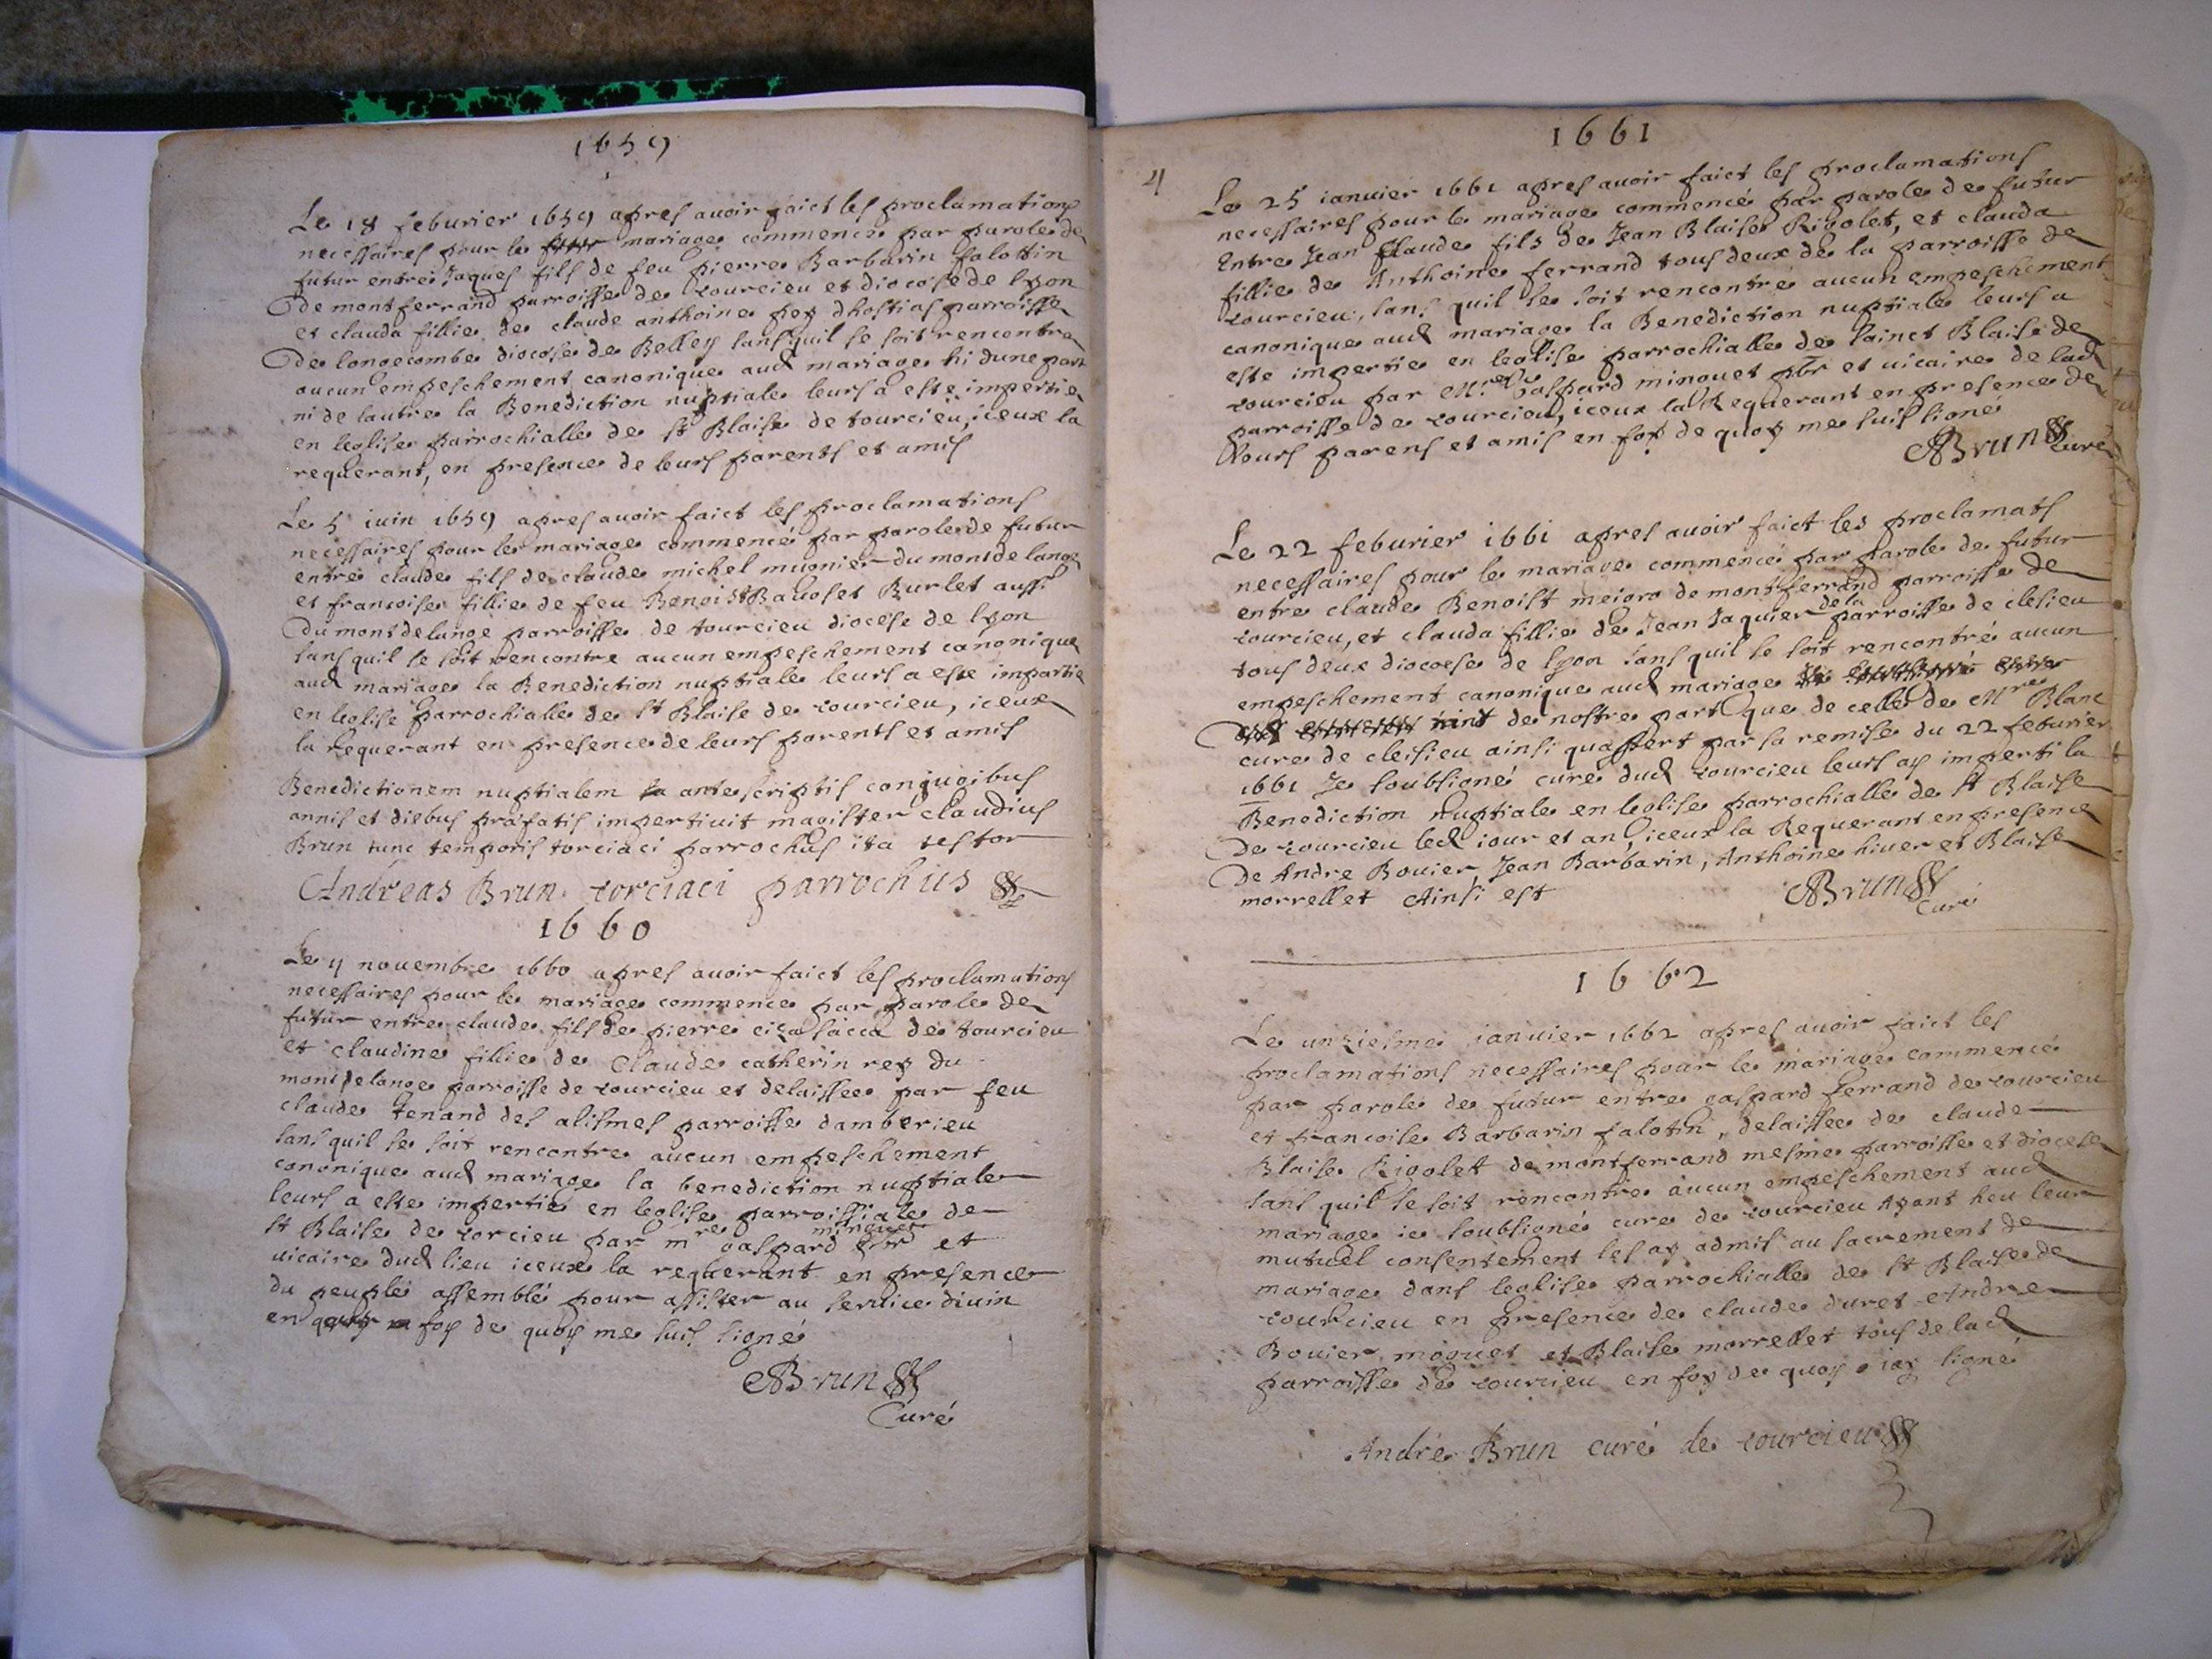 1659
Le 18 feburier 1659 apres auoir faict les proclamations
necessaires pour le mariage commence par parole de
futur entre Jaques fils de feu pierre Barbarin falottin
de montferrand parroisse de tourcieu et diocese de lyon
et clauda fillie de claude anthoine pey dhostias parroisse
de longecombe diocese de Belley sans quil se soit rencontre
aucun empeschement canonique aud mariage ni dune part
ni de lautre la Benediction nuptiale leurs a este impertie
en leglise parrochialle de st Blaise de tourcieu, iceux la
requerant, en presence de leurs parents et amis
Le 5 iuin 1659 apres auoir faict les proclamations
necessaires pour le mariage commencé par parole de futur
entre claude fils de claude michel mugnier du mont de lange
et francoise fillie de feu Benoist Burlet aussi
du mont de lange parroisse de tourcieu diocese de lyon
sans quil se soit rencontre aucun empeschement canonique
aud mariage la Benediction nuptiale leurs a este impartie
en leglise parrochialle de st Blaise de tourcieu, iceux
la Requerant en presence de leurs parents et amis
Benedictionem nuptialem antescriptis conjugibus
annis et diebus præfatis impertiuit magister claudius
Brun tunc temporis torciaci parrochus ita testor
Andreas Brun torciaci parrochus
1660
Le 4 nouembre 1660 apres auoir faict les proclamations
necessaires pour le mariage commence par parole de
futur entre claude fils de pierre de tourcieu
et claudine fillie de Claude catherin rey du
mont de lange parroisse de tourcieu et delaissee par feu
claude tenand des alismes parroisse damberieu
sans quil se soit rencontre aucun empeschement
canonique aud mariage la benediction nuptiale
leurs a este impertie en leglise parroissiale de
st Blaise de torcieu par mre gaspard minguet et
uicaire dud lieu iceux la requerant en presence
du peuple assemblé pour assister au seruice diuin
en foy de quoy me suis signé
ABrun
Curé
4
1661
Le 25 ianuier 1661 apres auoir faict les proclamations
necessaires pour le mariage commencé par parole de futur
Entre Jean Claude fils de Jean Blaise Rigolet, et clauda
fillie de Anthoine ferrand tous deux de la parroisse de
tourcieu, sans quil se soit rencontré aucun empeschement
canonique aud mariage la Benediction nuptiale leurs a
este impertie en leglise parrochialle de sainct Blaise de
tourcieu par Mre Gaspard minguet pbr et uicaire de lad
parroisse de tourcieu, iceux la Requerant en presence de
leurs parens et amis en foy de quoy me suis signé
ABrun
curé
Le 22 feburier 1661 apres auoir faict les proclamats
necessaires pour le mariage commence par parole de futur
entre claude Benoist meigra de montferrand parroisse de
tourcieu, et clauda fillie de Jean Jaquier de la parroisse de clesieu
tous deux diocoese de lyon sans quil se soit rencontré aucun
empeschement canonique aud mariage
tint de nostre part que de celle de Mre Blanc
cure de cleisieu ainsi quappert par sa remise du 22 feburier
1661 Je soubsigné curé dud tourcieu leurs ay imperti la
Benediction Nuptiale en leglise parrochialle de st Blaise
de tourcieu led iour et an, iceux la Requerant en presence
de Andre Bouier, Jean Barbarin, Anthoine hiuer et Blaise
morrellet Ainsi est
ABrun
Curé
1662
Le unziesme ianuier 1662 apres auoir faict les
proclamations necessaires pour le mariage commencé
par parole de futur entre gaspard ferrand de tourcieu
et francoise Barbarin falotin, delaissee de claude
Blaise Rigolet de montferrand mesme parroisse et diocese
sans quil se soit rencontre aucun empeschement aud
mariage ie soubsigné cure de tourcieu ayant heu leur
mutuel consentement les ay admis au sacrement de
mariage dans leglise parrochialle de st Blaise de
tourcieu en presence de claude duret Andre
Bouier moguet et Blaise morrellet tous de lad
parroisse de tourcieu en foy de quoy iay signé
André Brun curé de tourcieu